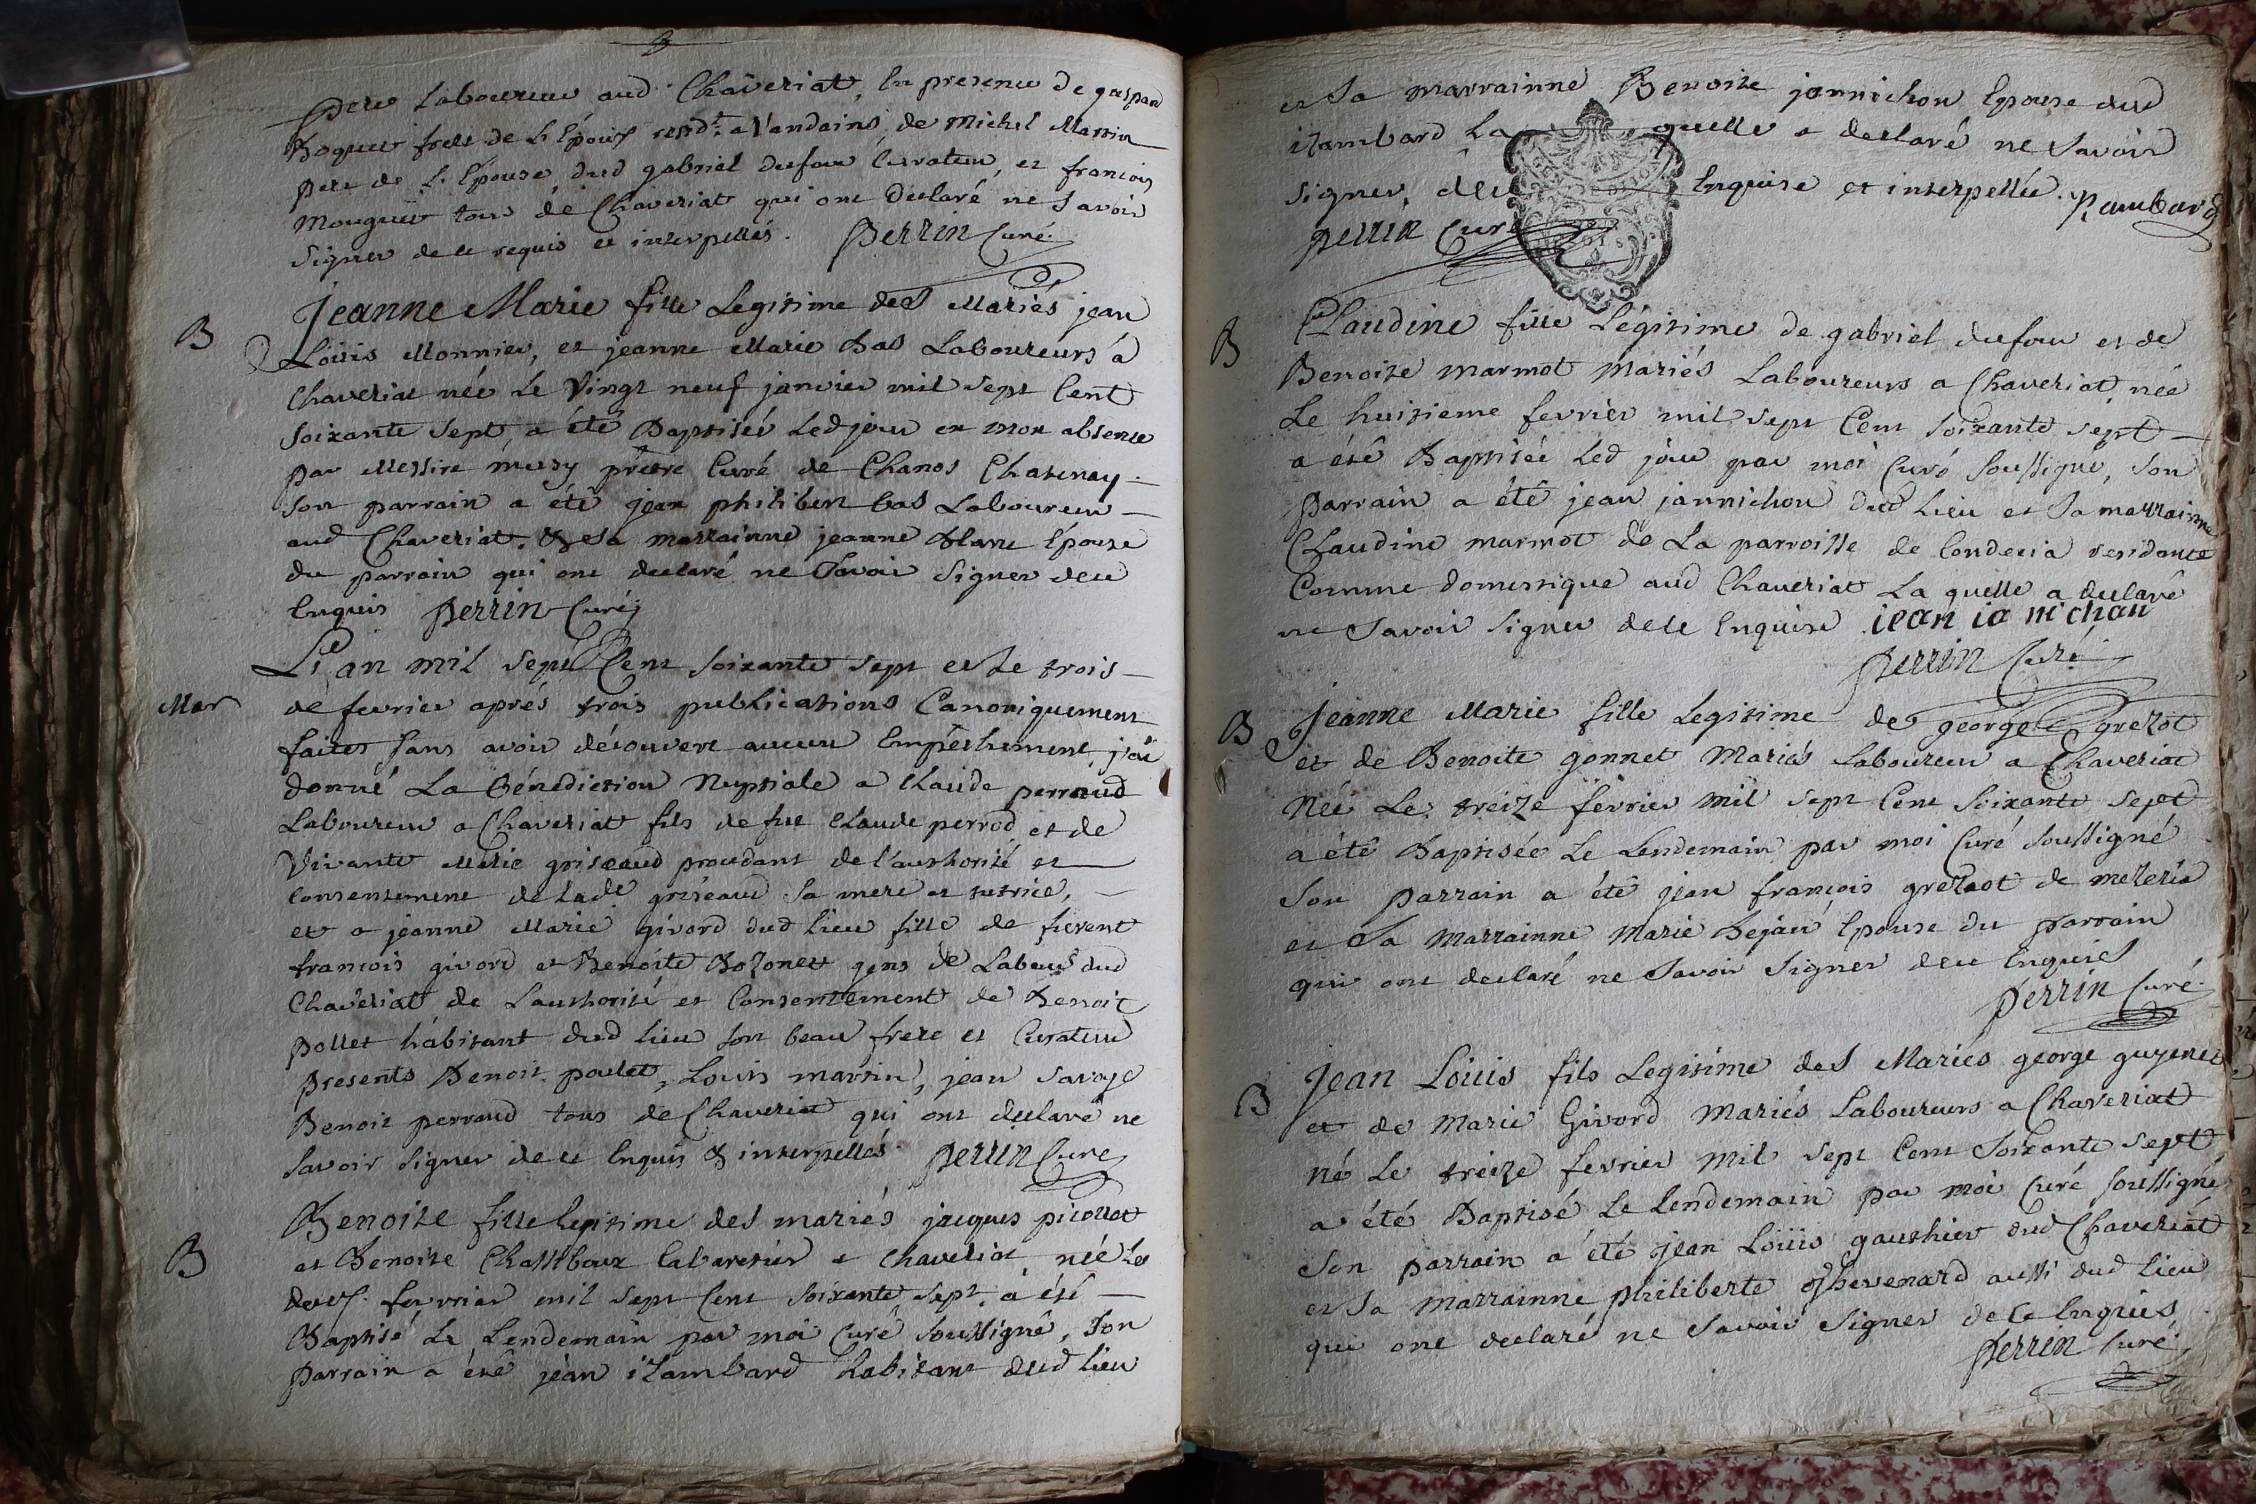 pere Laboureur aud. Chaveriat, En presence de gaspard
Boquet frere de L'Epoux resid.t a Vandains, de Michel Martin
pere de L'Epouse dud gabriel dufour Curateur, et francois
Monguet tous de Chaveriat qui ont Declaré ne Savoir
Signer de ce requis et interpellés. Perrin Curé
B
Jeanne Marie fille Legitime des Mariés jean
Loüis Monnier, et jeanne Marie Bas Laboureurs à
Chaveriat née Le Vingt neuf janvier mil sept Cent
Soixante Sept, a été Baptisée Led jour en mon absence
par Messire musy prêtre Curé de Chanos Chatenay.
Son parrain a été jean philibert bas Laboureur
aud Chaveriat. & sa marrainne jeanne Blanc Epouse
du parrain qui ont declaré ne Savoir Signer de ce
Enquis Perrin Curé
Mar
L'an mil sept Cent soixante sept et Le trois
de fevrier aprés trois publications Canoniquement
faites Sans avoir découvert aucun Empêchement, j'ai
donné La Bénédiction Nuptiale a Claude perraud
Laboureur a Chaveriat fils de fut Claude perrod et de
Vivante Marie griseaud procedant de l'authorité et
Consentement de lad.e griseaud Sa mere et tutrice,
et a jeanne Marie givord dud lieu fille de furent
francois givord et Benoite Bozonet gens de Labeur dud
Chaveriat de L'authorité et Consentement de Benoit
pollet habitant dud lieu son beau frere et Curateur
presents Benoit poulet, Louis martin, jean Savoye
Benoit perraud tous de Chaveriat qui ont declaré ne
Savoir Signer de ce Enquis & interpellés Perrin Curé
B
Benoite fille legitime des mariés jacques picollet
et Benoite Chassiboux Cabaretier a Chaveriat née Le
deux fevrier mil sept Cent Soixante sept, a été
Baptisé Le Lendemain par moi Curé soussigné, Son
parrain a été jean izambard habitant dud lieu
et Sa marrainne Benoite jannichon Epouse dud
izambard La quelle a declaré ne Savoir
Signer, de ce Enquise et interpellée. izambard
Perrin Curé
B
Claudine fille Légitime de gabriel dufour et de
Benoite marmot Mariés Laboureurs a Chaveriat, née
Le huitieme fevrier mil sept Cent soixante sept
a été Baptisée Led jour par moi Curé soussigné, Son
parrain a été jean jannichon dud Lieu et Sa marrainne
Claudine marmot de La parroisse de Condecia residante
Comme domestique aud Chaveriat La quelle a declaré
ne Savoir Signer de ce Enquise jean ja nichan
Perrin Curé
B
Jeanne Marie fille Legitime de george grezot
et de Benoite gonnet Mariés Laboureur a Chaveriat
Née Le treize fevrier mil sept Cent Soixante Sept
a été Baptisée Le Lendemain par moi Curé Soussigné
Son parrain a été jean françois grezot de mezeria
et Sa Marrainne Marie Bejan Epouse du parrain
qui ont declaré ne Savoir Signer de ce Enquis
Perrin Curé
B
Jean Loüis fils Legitime des Mariés george guyenet
et de Marie Givord Mariés Laboureurs a Chaveriat
né Le treize fevrier mil sept Cent Soixante sept
a été Baptisé Le Lendemain par moi Curé soussigné
Son parrain a été jean Loüis gauthier dud Chaveriat
et Sa Marrainne philiberte Thevenard aussi dud Lieu
qui ont declaré ne Savoir Signer de ce Enquis
Perrin Curé